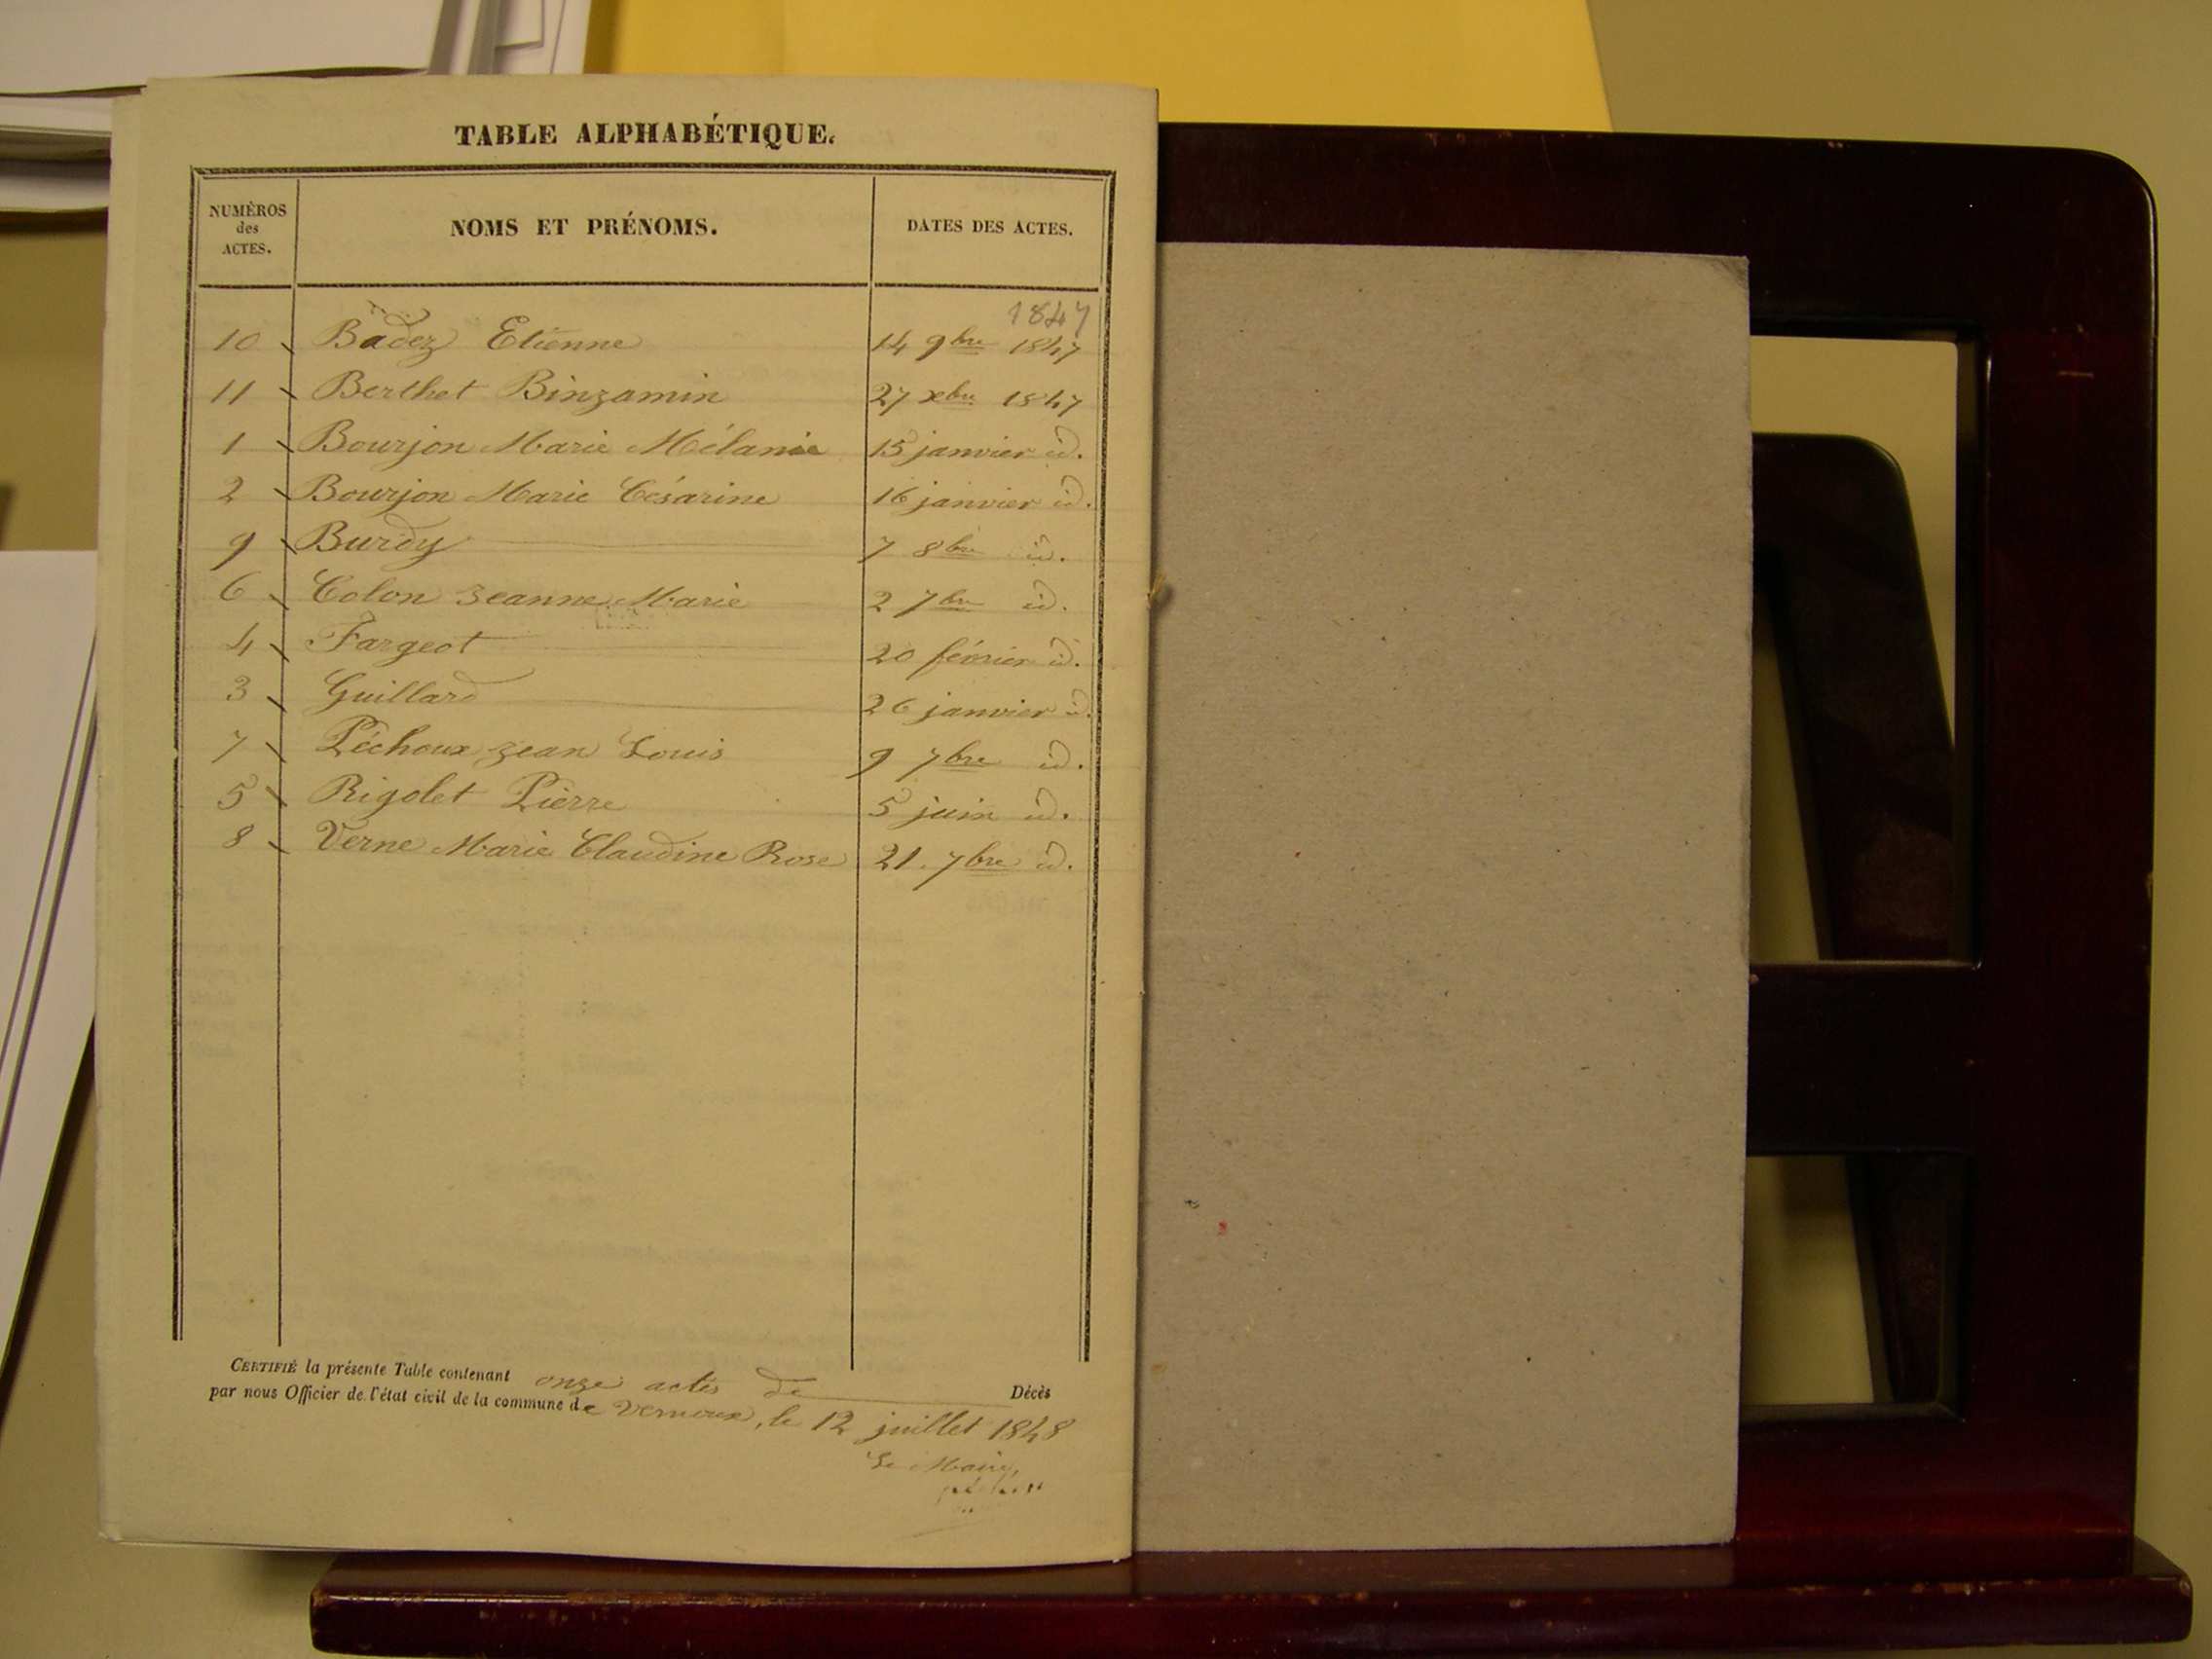 TABLE ALPHABÉTIQUE.
NUMÉROS des ACTES. NOMS ET PRÉNOMS. DATES DES ACTES.
1847
10 Badez Etienne 14 9bre 1847
11 Berthet Binjamin 27 xbre 1847
1 Bourjon Marie Mélanie 15 janvier id.
2 Bourjon Marie Césarine 16 janvier id.
9 Burdy 7 8bre id.
6 Colon Jeanne Marie 2 7bre id.
4 Fargeot 20 février id.
3 Guillard 26 janvier id.
7 Péchoux Jean Louis 9 7bre id.
5 Rigolet Pierre 5 juin id.
8 Verne Marie Claudine Rose 21 7bre id.
CERTIFIÉ la présente Table contenant onze actes de Décès
par nous Officier de l'état civil de la commune de Vernoux, le 12 juillet 1848
Le Maire,